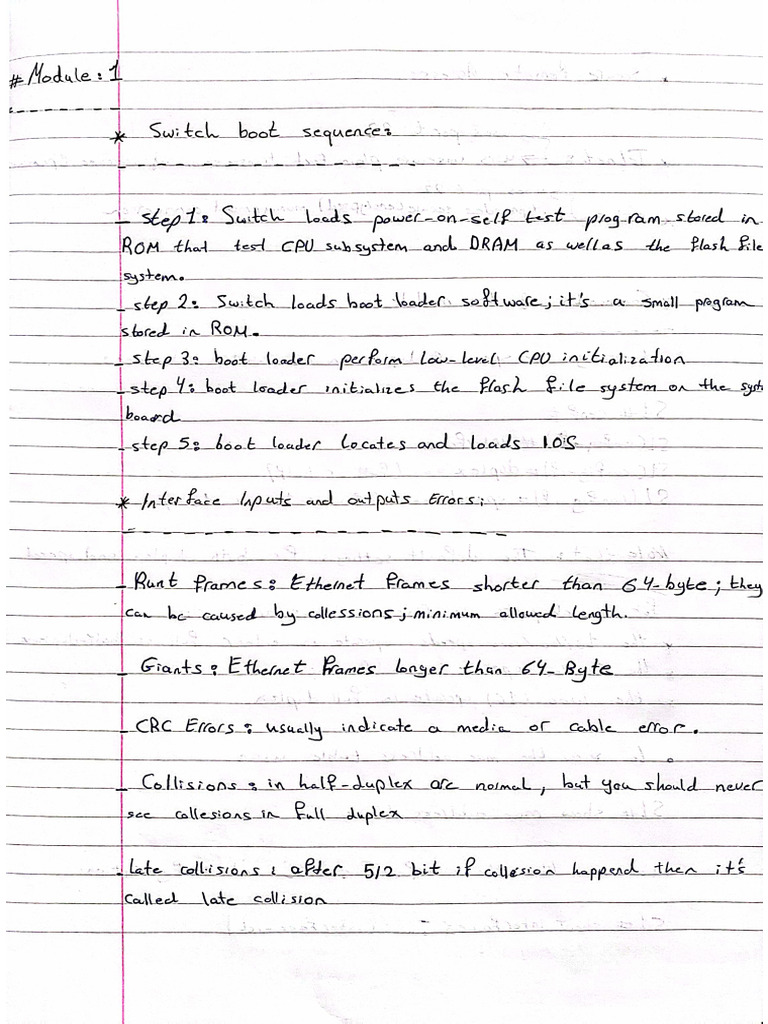 # Module: 1
* Switch boot sequence:
- step 1: Switch loads power-on-self test program stored in
ROM that test CPU subsystem and DRAM as well as the flash file
system.
- step 2: Switch loads boot loader software; it's a small program
stored in ROM.
- step 3: boot loader perform low-level CPU initialization
- step 4: boot loader initializes the flash file system on the syst
board
- step 5: boot loader Locates and loads IOS
* Interface Inputs and outputs Errors:
- Runt frames: Ethernet frames shorter than 64-byte; they
can be caused by collessions; minimum allowed length.
- Giants: Ethernet frames longer than 64-Byte
- CRC Errors: usually indicate a media or cable error.
- Collisions: in half-duplex are normal, but you should never
see collesions in full duplex
- late collisions: after 512 bit if collesion happend then it's
called late collision